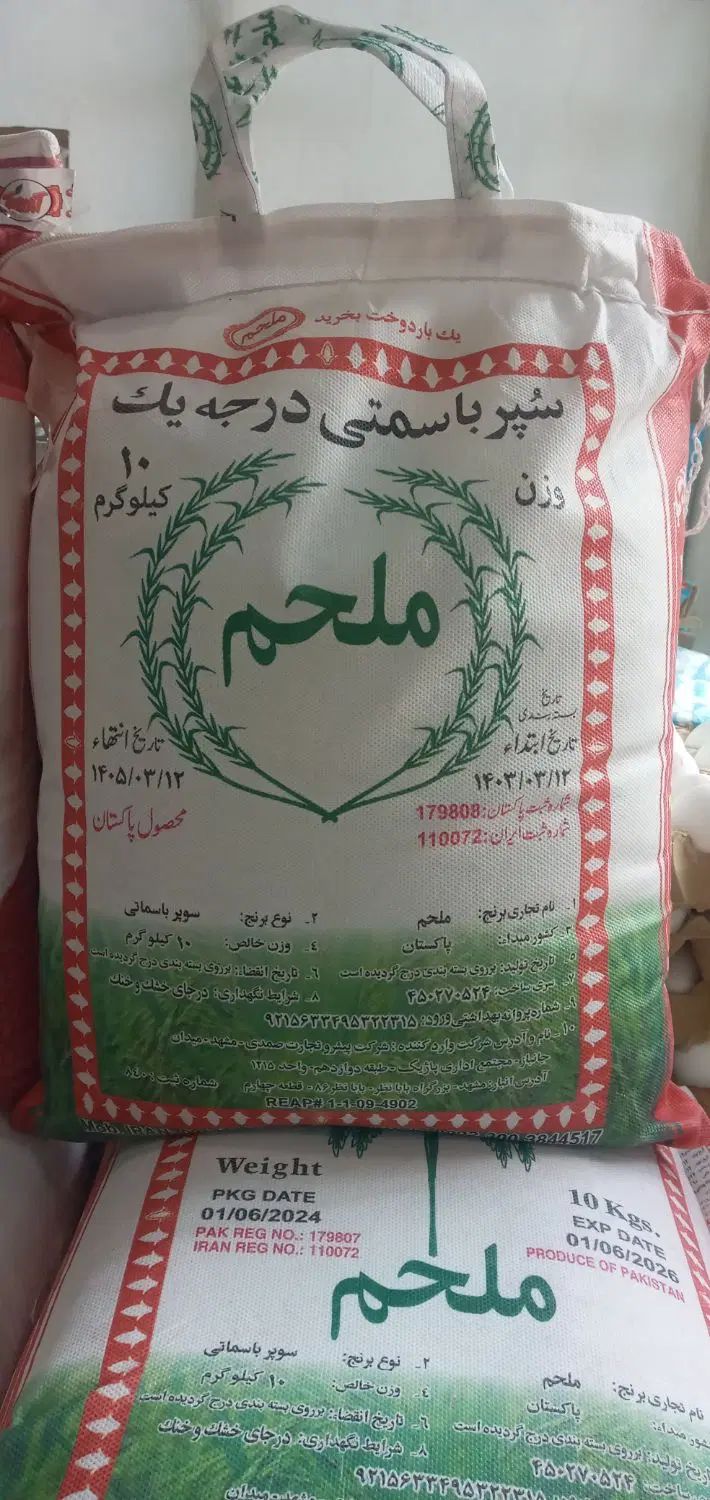 یك باردوخت بخرید ملحم
سُپر باسمتی درجه یك
وزن ۱۰ کیلوگرم
ملحم
تاریخ بسته بندی
تاریخ ابتداء تاریخ انتهاء
۱۴۰۳/۰۳/۱۲ ۱۴۰۵/۰۳/۱۲
شماره ثبت پاکستان: 179808 محصول پاکستان
شماره ثبت ایران: 110072
۱_ نام تجاری برنج: ملحم ۲_ نوع برنج: سوپر باسماتی
۳_ کشور مبداء: پاکستان ۴_ وزن خالص: ۱۰ کیلوگرم
۵_ تاریخ تولید: برروی بسته بندی درج گردیده است ۶_ تاریخ انقضا: برروی بسته بندی درج گردیده است
۷_ سری ساخت: ۴۵۰۲۷۰۵۲۴ ۸_ شرایط نگهداری: درجای خشك و خنك
۹_ شماره پروانه بهداشتی ورود: ۹۲۱۵۶۳۳۴۹۵۳۲۲۲۳۱۵
۱۰_ نام و آدرس شرکت وارد کننده: شرکت پیشرو تجارت صمدی - مشهد - میدان
جانباز - مجتمع اداری پاژ - طبقه دوازدهم - واحد ۱۲۱۵
آدرس انبار: مشهد - بزرگراه بابا نظر - بابا نظر ۸۶ - قطعه چهارم شماره ثبت: ۸۴۰۰
REAP# 1-1-09-4902
Mob: IRAN 3844517
Weight 10 Kgs.
PKG DATE EXP DATE
01/06/2024 01/06/2026
PAK REG NO.: 179807 PRODUCE OF PAKISTAN
IRAN REG NO.: 110072
ملحم
نام تجاری برنج: ملحم ۲_ نوع برنج: سوپر باسماتی
کشور مبداء: پاکستان ۴_ وزن خالص: ۱۰ کیلوگرم
تاریخ تولید: برروی بسته بندی درج گردیده است ۶_ تاریخ انقضا: برروی بسته بندی درج گردیده است
ساخت: ۴۵۰۲۷۰۵۲۴ ۸_ شرایط نگهداری: درجای خشك و خنك
۹۲۱۵۶۳۳۴۹۵۳۲۲۲۳۱۵
میدان